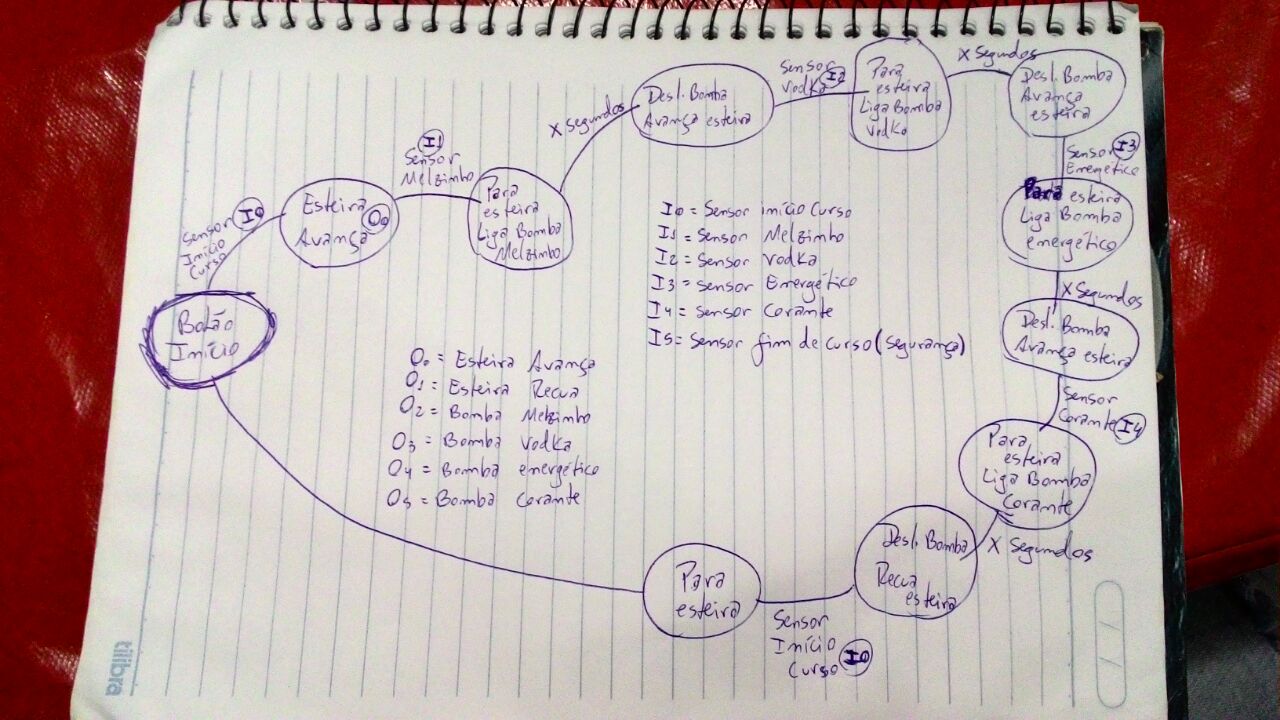 Botão
Início
Sensor I0
Início
Curso
Esteira
Avança O0
I1
Sensor
Melzinho
Para
esteira
Liga Bomba
Melzinho
X segundos
Desl. Bomba
Avança esteira
Sensor
Vodka I2
Para
esteira
Liga Bomba
Vodka
X Segundos
Desl. Bomba
Avança
esteira
Sensor I3
Energético
Para esteira
Liga Bomba
energético
X Segundos
Desl. Bomba
Avança esteira
Sensor
Corante I4
Para
esteira
Liga Bomba
Corante
X Segundos
Desl. Bomba
Recua
esteira
Sensor
Início
Curso I0
Para
esteira
I0 = Sensor início Curso
I1 = Sensor Melzinho
I2 = Sensor Vodka
I3 = Sensor Energético
I4 = Sensor Corante
I5 = Sensor fim de curso (segurança)
O0 = Esteira Avança
O1 = Esteira Recua
O2 = Bomba Melzinho
O3 = Bomba Vodka
O4 = Bomba energético
O5 = Bomba Corante
tilibra